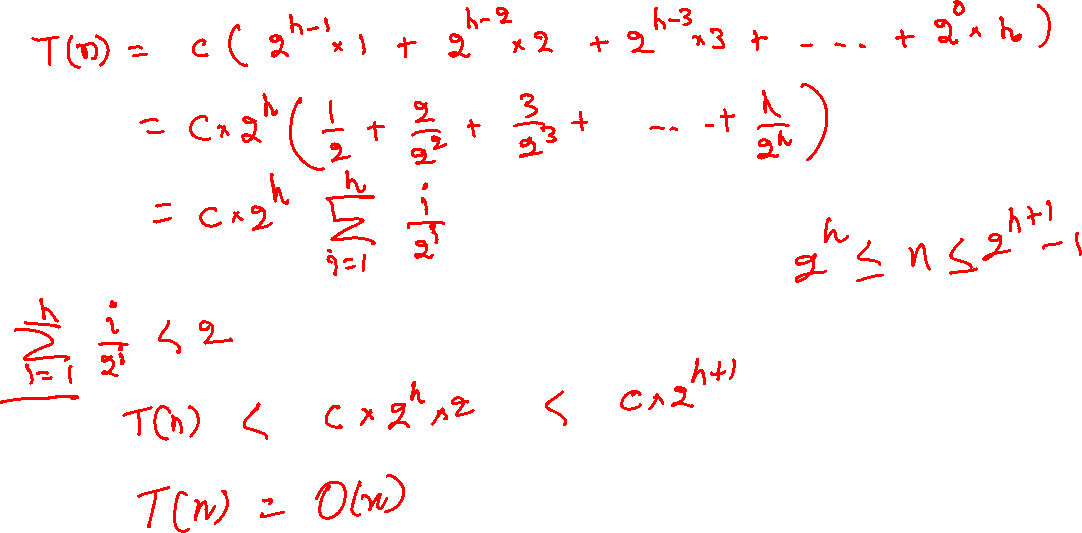 T(n) = c ( 2^{h-1} × 1 + 2^{h-2} × 2 + 2^{h-3} × 3 + - - - - + 2^0 × h )
= C × 2^h ( 1/2 + 2/2^2 + 3/2^3 + - - - + h/2^h )
= C × 2^h ∑_{i=1}^{h} i/2^i
2^h ≤ n ≤ 2^{h+1} - 1
∑_{i=1}^{h} i/2^i < 2
T(n) < C × 2^h × 2 < C × 2^{h+1}
T(n) = O(n)